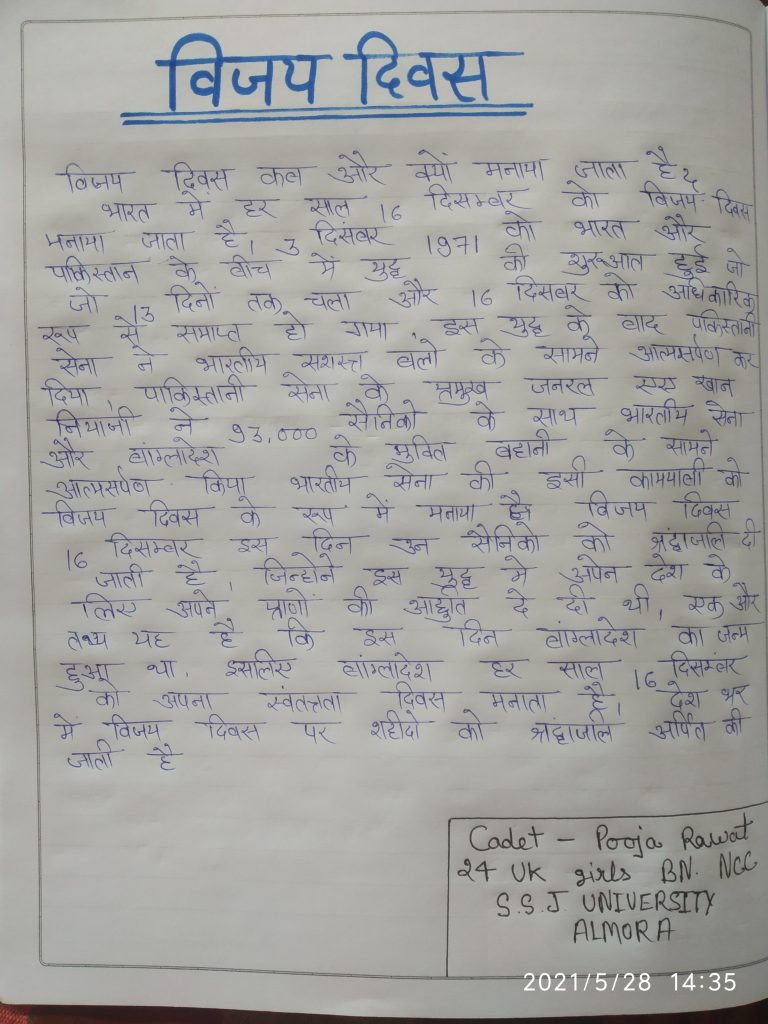 विजय दिवस
विजय दिवस कब और क्यों मनाया जाता है?
भारत में हर साल 16 दिसम्बर को विजय दिवस
मनाया जाता है, 3 दिसंबर 1971 को भारत और
पाकिस्तान के बीच में युद्ध की शुरुआत हुई जो
जो 13 दिनों तक चला और 16 दिसबर को आधिकारिक
रूप से समाप्त हो गया, इस युद्ध के बाद पाकिस्तानी
सेना ने भारतीय सशस्त्र बलो के सामने आत्मसर्पण कर
दिया, पाकिस्तानी सेना के प्रमुख जनरल एए खान
नियाजी ने 93,000 सैनिको के साथ भारतीय सेना
और बांग्लादेश के मुक्ति बहानी के सामने
आत्मसर्पण किया भारतीय सेना की इसी कामयाबी को
विजय दिवस के रूप में मनाया है विजय दिवस
16 दिसम्बर इस दिन उन सैनिको को श्रद्धाजलि दी
जाती है, जिन्होने इस युद्ध मे अपने देश के
लिए अपने प्राणों की आहुति दे दी थी, एक और
तथ्य यह है कि इस दिन बांग्लादेश का जन्म
हुआ था, इसलिए बांग्लादेश हर साल 16 दिसंम्बर
को अपना स्वंतत्रता दिवस मनाता है, देश भर
में विजय दिवस पर शहीदो को श्रद्धाजलि अर्पित की
जाती है
Cadet - Pooja Rawat
24 UK girls BN. NCC
S.S.J. UNIVERSITY
ALMORA
2021/5/28 14:35